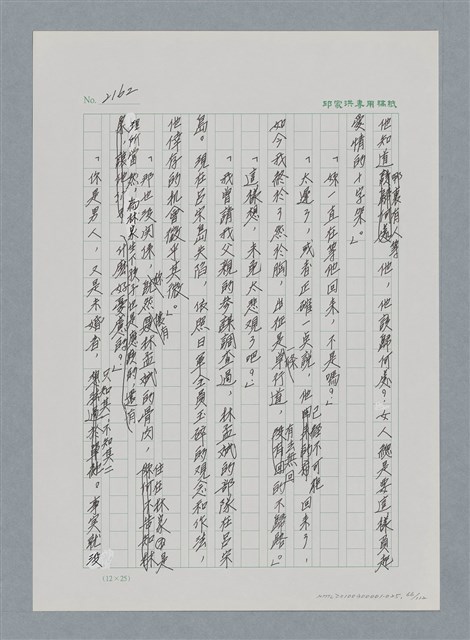 No. 2162
邱家洪專用稿紙
他知道那裏有人等他，他該歸何處？女人總是要這樣負起
愛情的十字架。」
「妳一直在等他回來，不是嗎？」
「太遲了，或者正確一點說，他已經不可能回來了，
如今我終於了然於胸，出征是單行道，條有去無回的不歸路。」
「這樣想，未免太悲觀了吧？」
「我曾請我父親的參謀調查過，林孟斌的部隊在呂宋
島。現在呂宋島失陷，依照日軍全員玉碎的觀念和作法，
他倖存的機會微乎其微。」
「那也沒關係，既然妳懷有林孟斌的骨肉，住在林家也是
理所當然，
什麼好憂慮的？」
「你是男人，又是未婚者，只知其一不知其二。事實就沒
(12×25)